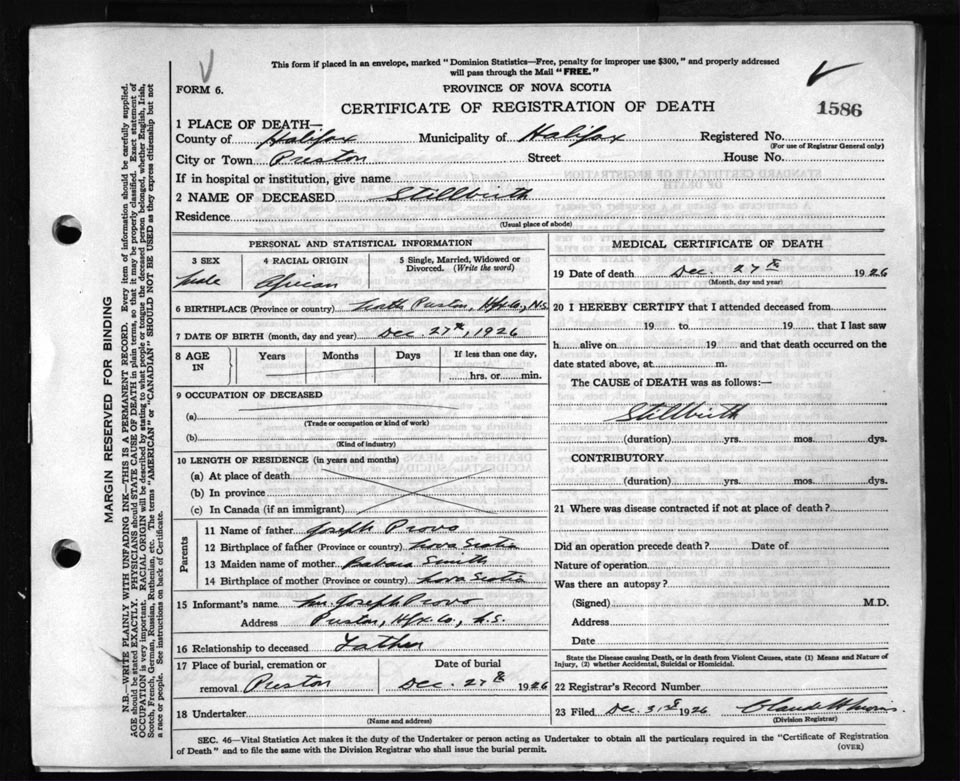 This form if placed in an envelope, marked "Dominion Statistics—Free, penalty for improper use $300," and properly addressed
will pass through the Mail "FREE."
FORM 6.
PROVINCE OF NOVA SCOTIA
CERTIFICATE OF REGISTRATION OF DEATH
1586
1 PLACE OF DEATH—
County of Halifax Municipality of Halifax Registered No.
(For use of Registrar General only)
City or Town Preston Street House No.
If in hospital or institution, give name
2 NAME OF DECEASED Stillbirth
Residence
(Usual place of abode)
PERSONAL AND STATISTICAL INFORMATION
3 SEX 4 RACIAL ORIGIN 5 Single, Married, Widowed or
Divorced. (Write the word)
Male African
6 BIRTHPLACE (Province or country) Preston, Hfx. Co., N.S.
7 DATE OF BIRTH (month, day and year) Dec. 27th, 1926
8 AGE IN Years Months Days If less than one day,
hrs. or min.
9 OCCUPATION OF DECEASED
(a)
(Trade or occupation or kind of work)
(b)
(Kind of industry)
10 LENGTH OF RESIDENCE (in years and months)
(a) At place of death
(b) In province
(c) In Canada (if an immigrant)
Parents
11 Name of father Joseph Provo
12 Birthplace of father (Province or country) Nova Scotia
13 Maiden name of mother Babara Smith
14 Birthplace of mother (Province or country) Nova Scotia
15 Informant's name Joseph Provo
Address Preston, Hfx. Co., N.S.
16 Relationship to deceased Father
17 Place of burial, cremation or Date of burial
removal Preston Dec. 27th 1926
18 Undertaker
(Name and address)
MEDICAL CERTIFICATE OF DEATH
19 Date of death Dec. 27th 1926
(Month, day and year)
20 I HEREBY CERTIFY that I attended deceased from
19 to 19 , that I last saw
h alive on 19 and that death occurred on the
date stated above, at m.
The CAUSE of DEATH was as follows:—
Stillbirth
(duration) yrs. mos. dys.
CONTRIBUTORY
(duration) yrs. mos. dys.
21 Where was disease contracted if not at place of death?
Did an operation precede death? Date of
Nature of operation
Was there an autopsy?
(Signed) M.D.
Address
Date
State the Disease causing Death, or in death from Violent Causes, state (1) Means and Nature of
Injury, (2) whether Accidental, Suicidal or Homicidal.
22 Registrar's Record Number
23 Filed Dec. 31st 1926
(Division Registrar)
SEC. 46—Vital Statistics Act makes it the duty of the Undertaker or person acting as Undertaker to obtain all the particulars required in the "Certificate of Registration
of Death" and to file the same with the Division Registrar who shall issue the burial permit.
(OVER)
MARGIN RESERVED FOR BINDING
N.B.—WRITE PLAINLY WITH UNFADING INK—THIS IS A PERMANENT RECORD. Every item of information should be carefully supplied.
AGE should be stated EXACTLY. PHYSICIANS should STATE CAUSE OF DEATH in plain terms, so that it may be properly classified. Exact statement of
OCCUPATION is very important. RACIAL ORIGIN will be described by stating to what people or tongue the deceased person belonged, whether English, Irish,
Scotch, French, German, Russian, Ruthenian, etc. The terms "AMERICAN" or "CANADIAN" SHOULD NOT BE USED as they express citizenship but not
a race or people. See instructions on back of Certificate.